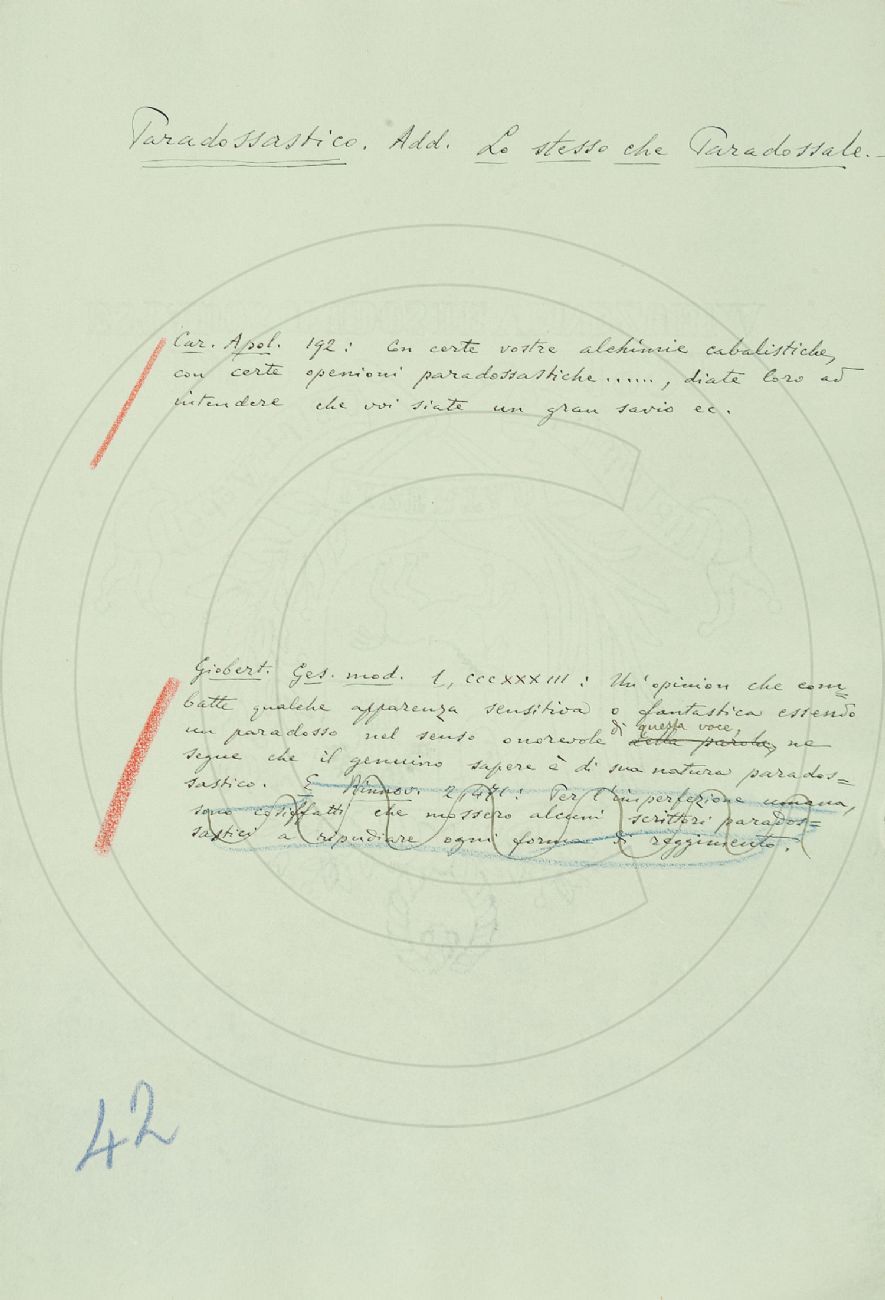 Paradossastico. Add. Lo stesso che Paradossale. –
Car. Apol. 192: Con certe vostre alchimie cabalistiche,
con certe openioni paradossastiche ......, diate loro ad
intendere che voi siate un gran savio ec.
Giobert. Ges. mod. 1, CCCXXXIII: Un'opinion che com=
batte qualche apparenza sensitiva o fantastica essendo
di questa voce,
un paradosso nel senso onorevole della parola, ne
segue che il genuino sapere è di sua natura parados=
sastico. E Rinnov. 2, 471: Per l'imperfezione umana,
sono cosiffatti che mossero alcuni scrittori parados=
sastici a ripudiare ogni forma di reggimento.
42